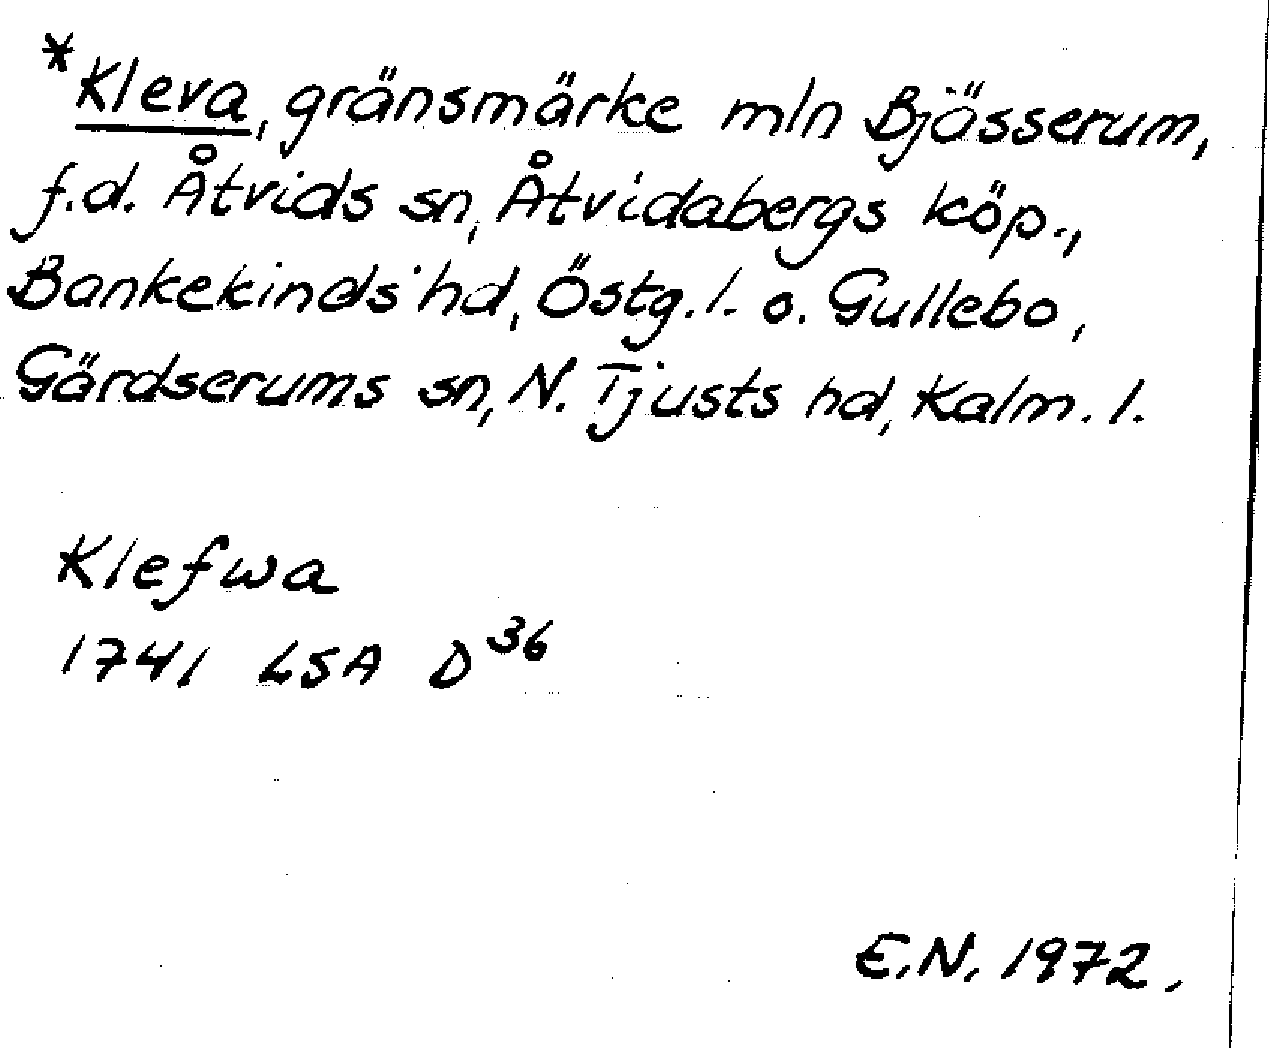 *Kleva, gränsmärke mln Bjässerum,
f.d. Åtvids sn, Åtvidabergs köp.,
Bankekinds hd, Östg.l. o. Gullebo,
Gärdserums sn, N. Tjusts hd, Kalm. l.
Klefwa
1741 LSA D36
E.N. 1972.